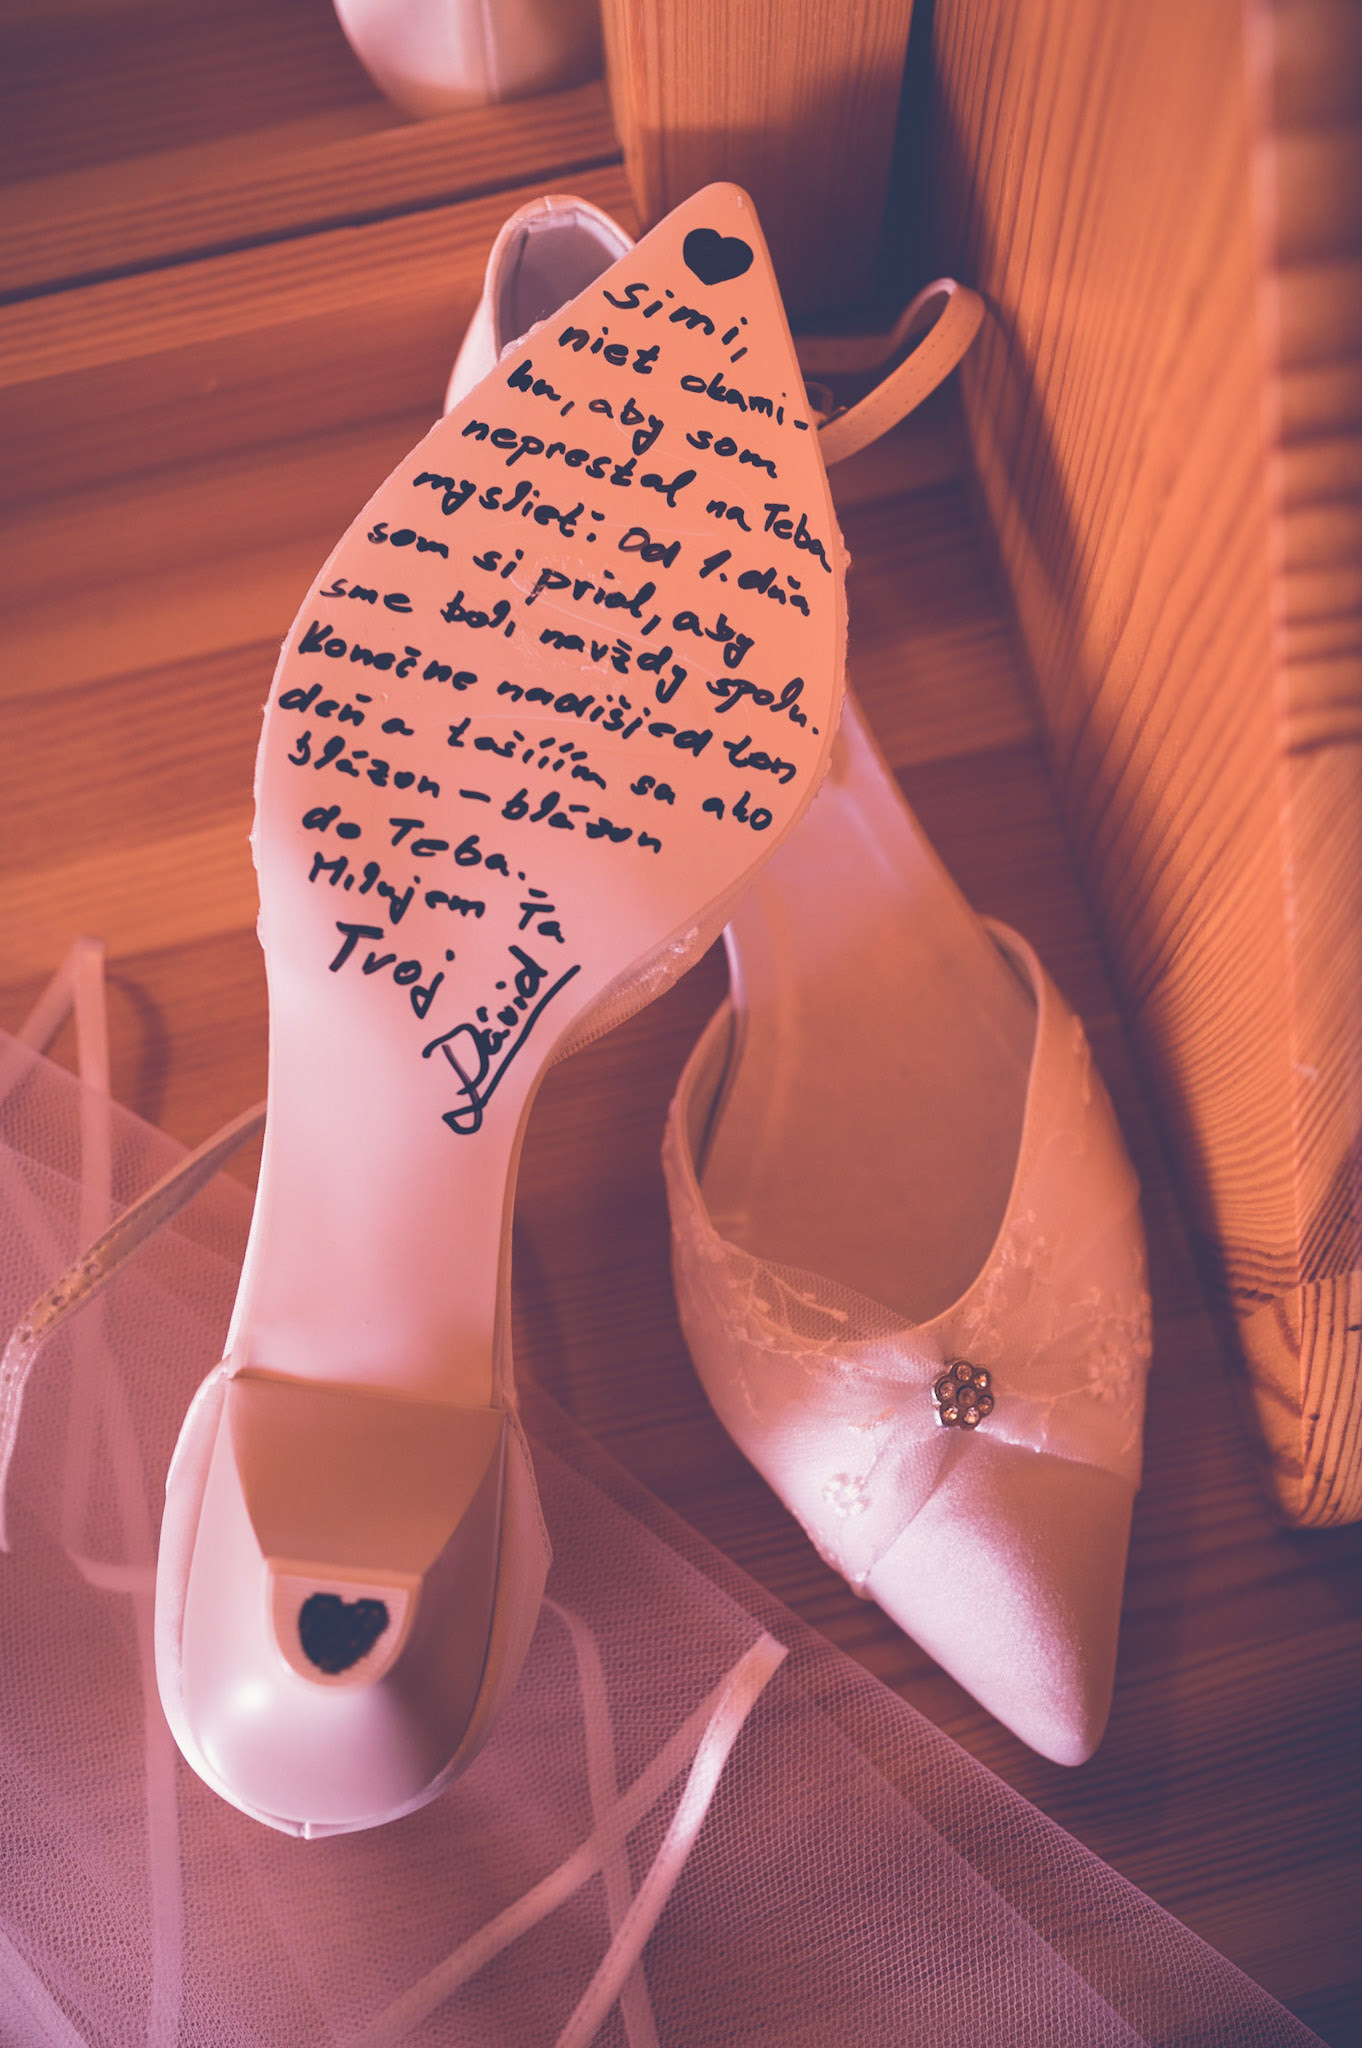 Simi,
niet okami-
hu, aby som
neprestal na Teba
myslieť. Od 1. dňa
som si prial, aby
sme boli navždy spolu.
Konečne nadišiel ten
deň a tešííím sa ako
blázon - blázon
do Teba.
Milujem Ťa
Tvoj
Dávid